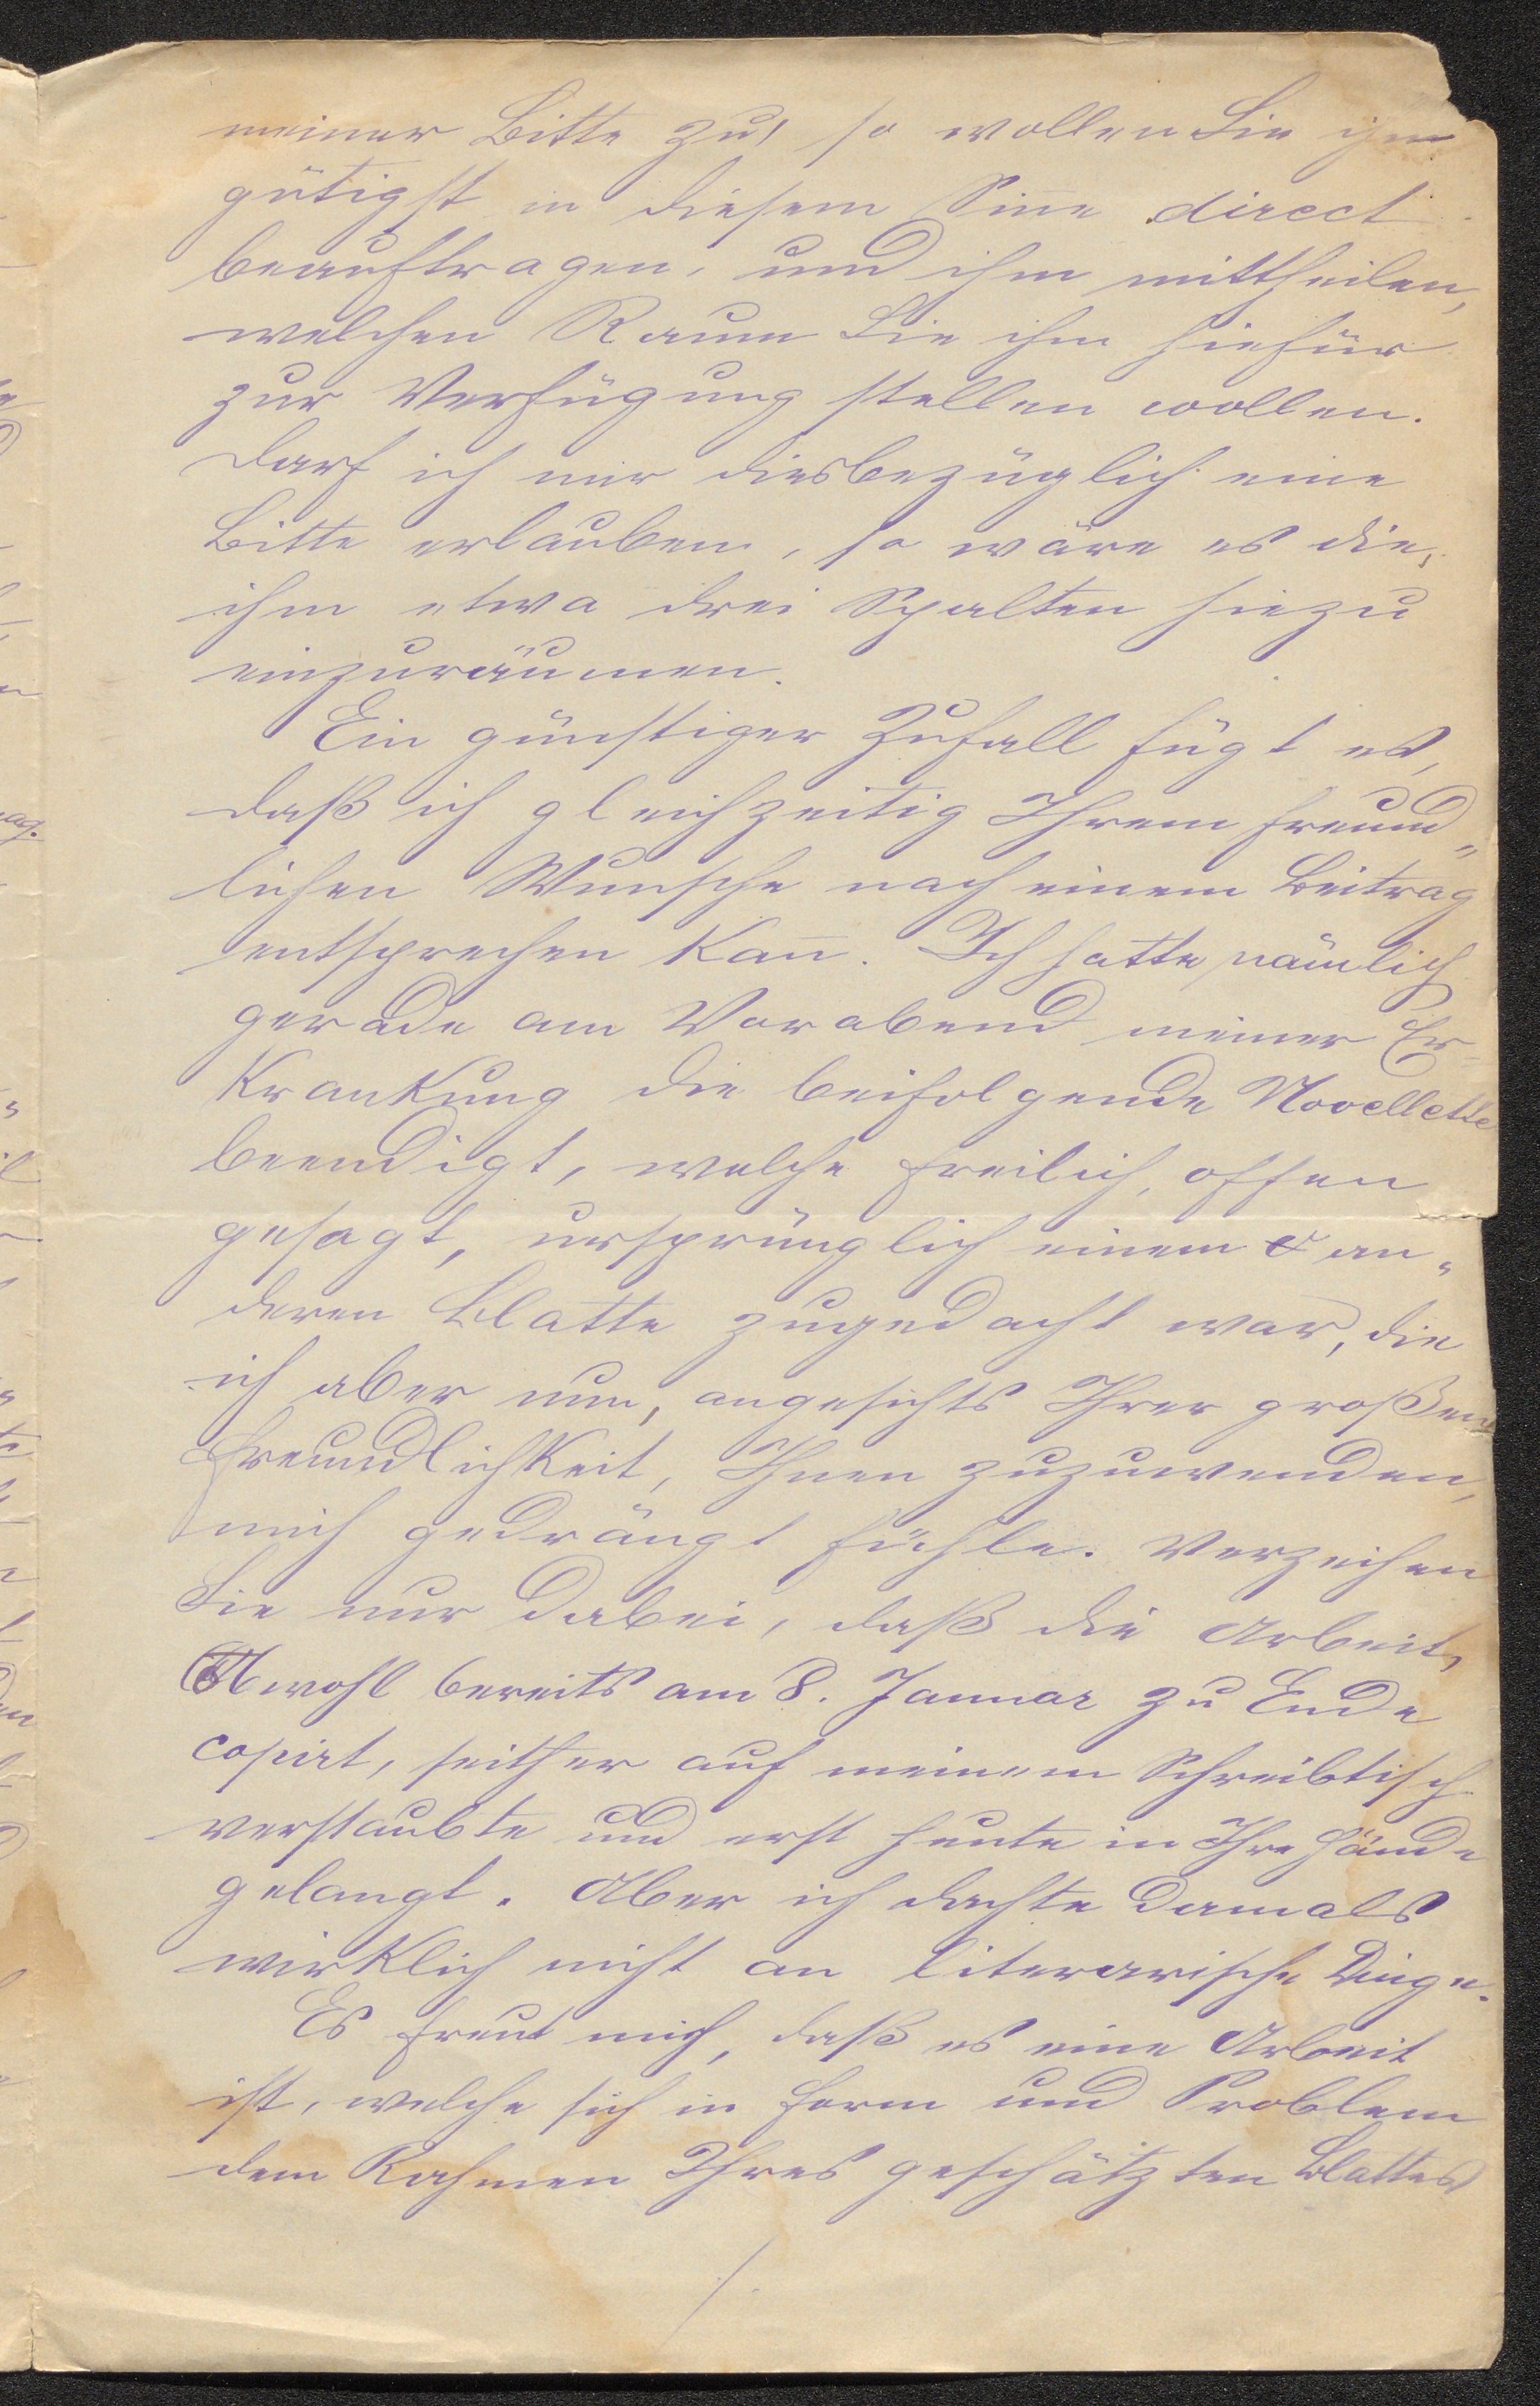 meiner Bitte zu, so wollen Sie ihn
gütigst in diesem Sin̄e direct
beauftragen, und ihm mittheilen,
welchen Raum Sie ihm hiefür
zur Verfügung stellen wollen.
Darf ich mir diesbezüglich eine
Bitte erlauben, so wäre es die,
ihm etwa drei Spalten hiezu
einzuräumen.
Ein günstiger Zufall fügt es,
daß ich gleichzeitig Ihrem freund„
lichen Wunsche nach einem Beitrag
entsprechen kan̄. Ich hatte nämlich
gerade am Vorabend meiner Er-
krankung die beifolgende Novellette
beendigt, welche freilich, offen
gesagt, ursprünglich einem an„
deren Blatte zugedacht war, die
ich aber nun, angesichts Ihrer großen
Freundlichkeit, Ihnen zuzuwenden,
mich gedrängt fühle. Verzeihen
Sie nur dabei, daß die Arbeit,
Obwohl bereits am 8. Januar zu Ende
copirt, seither auf meinem Schreibtisch
verstaubte und erst heute in Ihre Hände
gelangt. Aber ich dachte damals
wirklich nicht an literarische Dinge.
Es freut mich, daß es eine Arbeit
ist, welche sich in Form und Problem
dem Rahmen Ihres geschätzten Blattes
./.